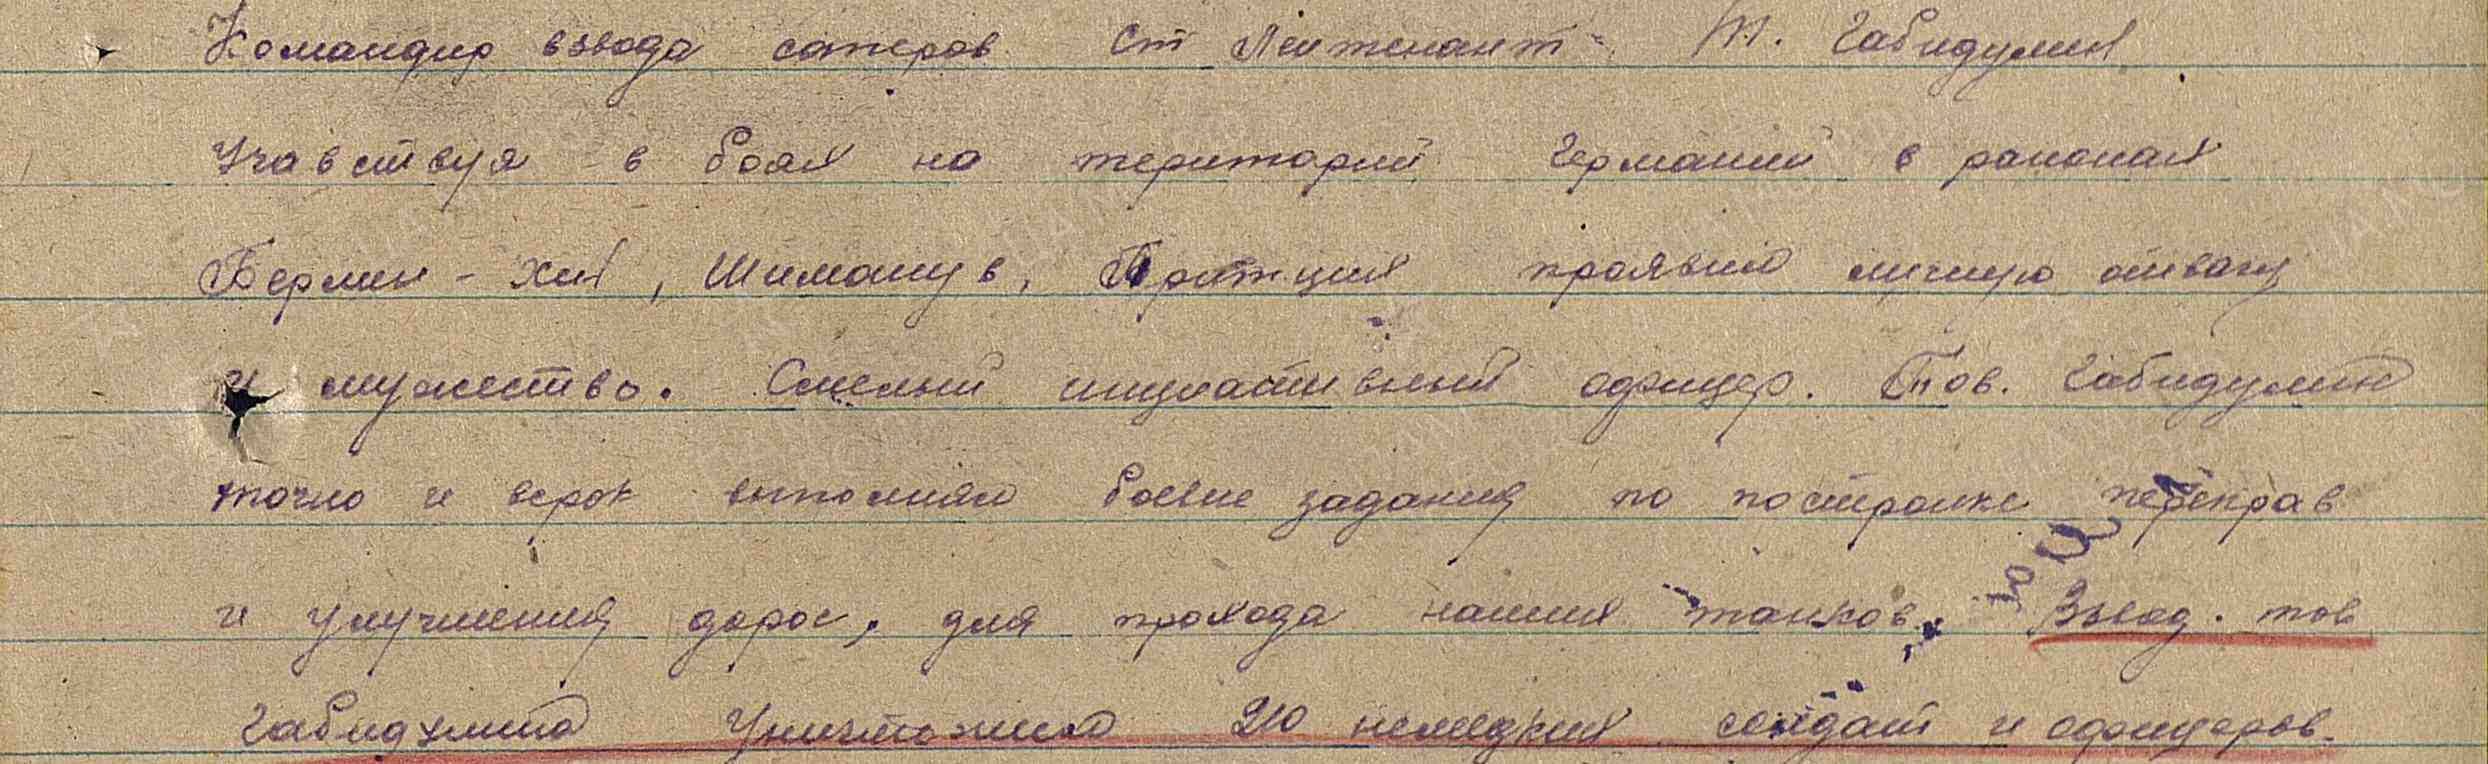 Командир взвода саперов ст Лейтенант Т. Габидулин
Учавствуя в боях на територий Германий в районах
Берлин - хен, Шиманув, проявил личную отвагу
и мужество. Смелый инцеативный офицер. Тов. Габидулин
точно и всрок выполнял боевые задания по постройке переправ
и улучшения дорог, для прохода наших танков. Взвод. тов
Габидулина Уничтожил 20 немецких солдат и офицеров.